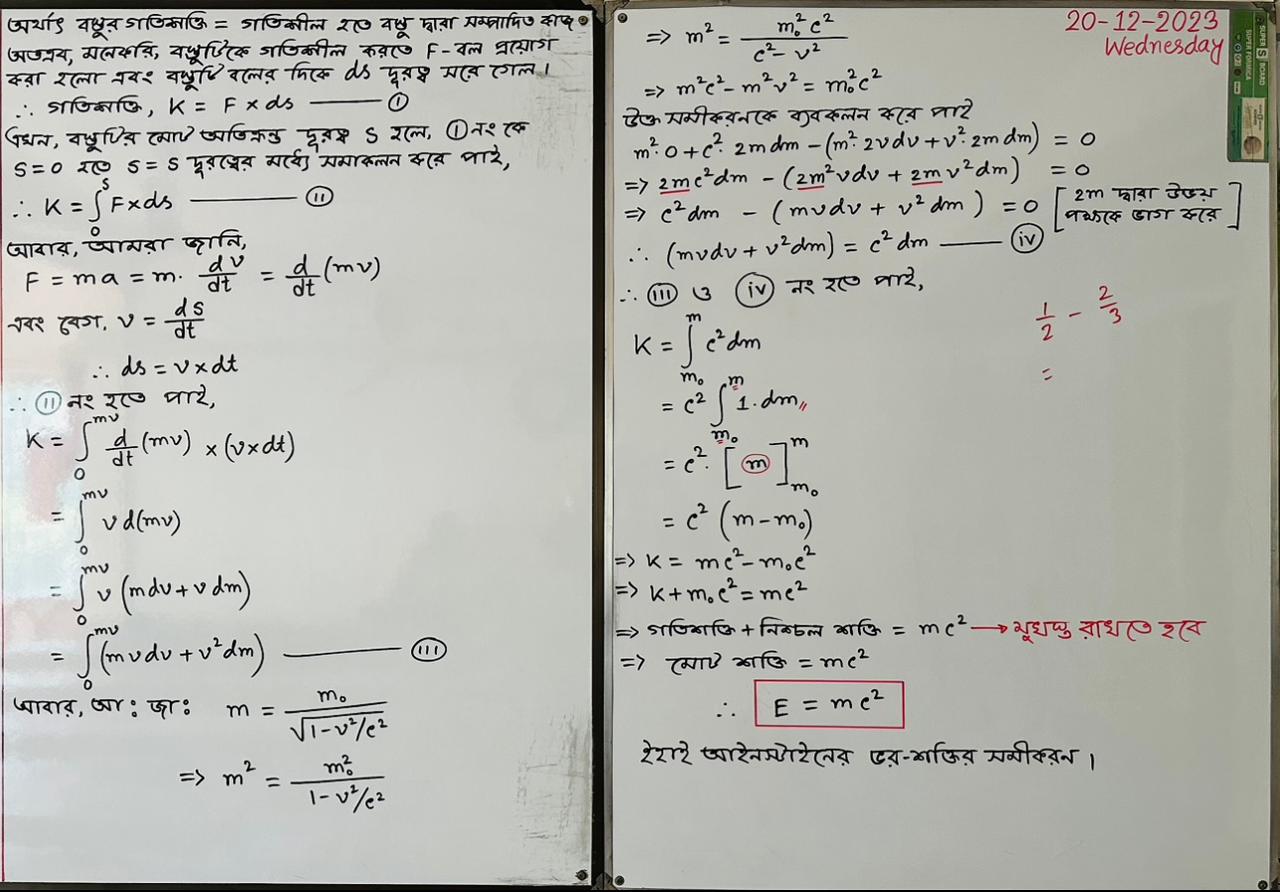 অর্থাৎ বস্তুর গতিশক্তি = গতিশীল হতে বস্তু দ্বারা সম্পাদিত কাজ
অতএব, মনেকরি, বস্তুটিকে গতিশীল করতে F-বল প্রয়োগ
করা হলো এবং বস্তুটি বলের দিকে ds দূরত্ব সরে গেল।
∴ গতিশক্তি, K = F × ds ——— ⓘ
এখন, বস্তুটির মোট অতিক্রান্ত দূরত্ব S হলে, ⓘ নং কে
S = 0 হতে S = S দূরত্বের মধ্যে সমাকলন করে পাই,
∴ K = ∫₀ˢ F × ds ——— (ii)
আবার, আমরা জানি,
F = ma = m. dv/dt = d/dt (mv)
এবং বেগ, v = ds/dt
∴ ds = v × dt
∴ (ii) নং হতে পাই,
K = ∫₀^mv d/dt (mv) × (v × dt)
= ∫₀^mv v d(mv)
= ∫₀^mv v (mdv + v dm)
= ∫₀^mv (mvdv + v² dm) ——— (iii)
আবার, আ: জা: m = m₀/√(1 - v²/c²)
=> m² = m₀²/(1 - v²/c²)
=> m² = m₀² c²/(c² - v²)
=> m²c² - m² v² = m₀² c²
উক্ত সমীকরনকে ব্যবকলন করে পাই
m². 0 + c². 2m dm - (m². 2v dv + v². 2m dm) = 0
=> 2mc² dm - (2m² v dv + 2m v² dm) = 0
=> c² dm - (mvdv + v² dm) = 0 [2m দ্বারা উভয় পক্ষকে ভাগ করে]
∴ (mvdv + v² dm) = c² dm ——— (iv)
∴ (iii) ও (iv) নং হতে পাই,
K = ∫_m₀^m c² dm
= c² ∫_m₀^m 1. dm
= c². [m]_m₀^m
= c² (m - m₀)
=> K = mc² - m₀c²
=> K + m₀c² = mc²
=> গতিশক্তি + নিশ্চল শক্তি = mc² → মুখস্থ রাখতে হবে
=> মোট শক্তি = mc²
∴ E = mc²
ইহাই আইনস্টাইনের ভর-শক্তির সমীকরন।
20-12-2023
Wednesday
1/2 - 2/3
=
SUPER S BOARD
SUPER FORMICA